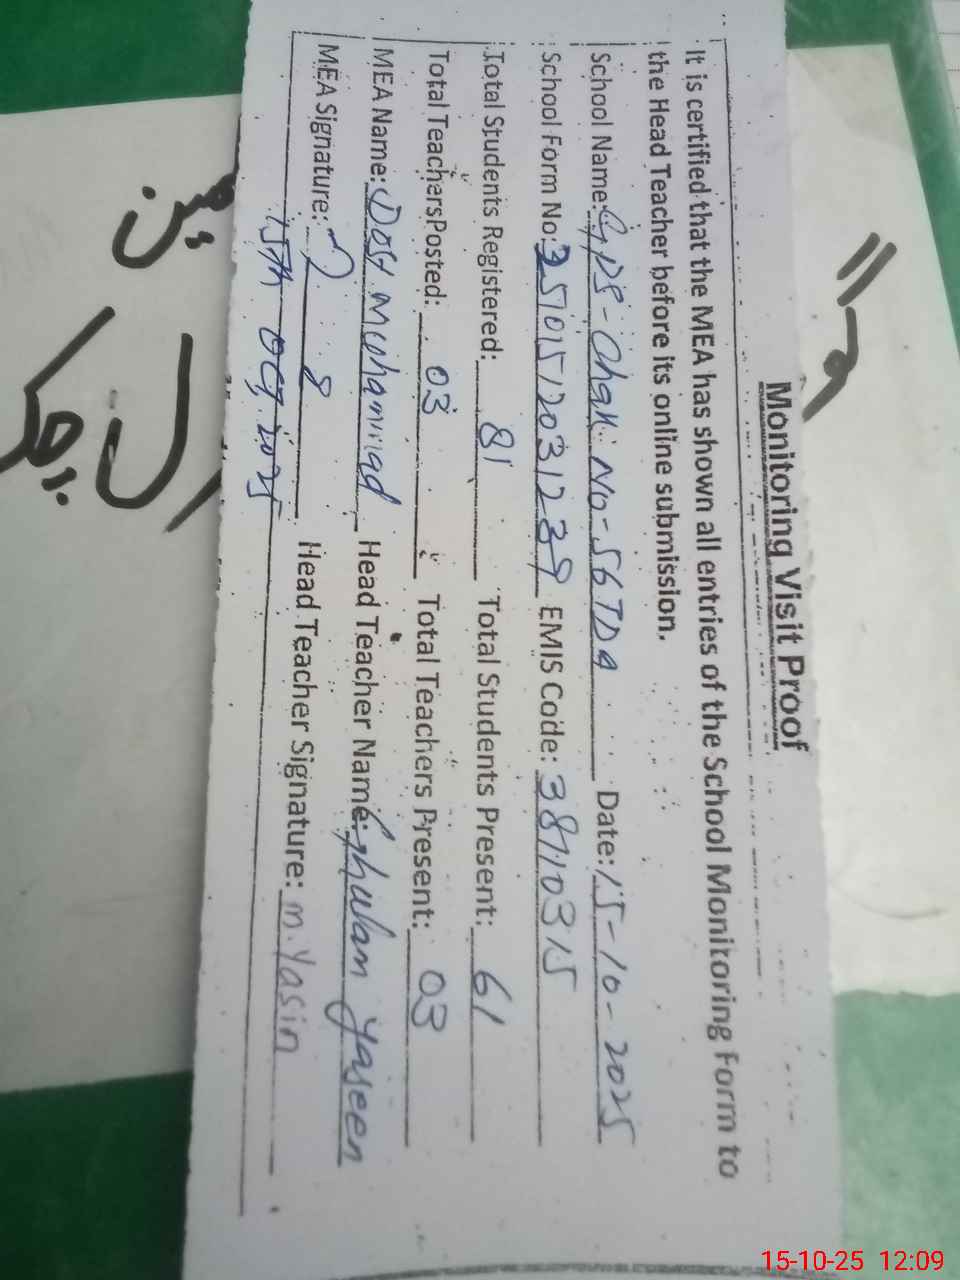 Monitoring Visit Proof
It is certified that the MEA has shown all entries of the School Monitoring Form to
the Head Teacher before its online submission.
School Name: GPS-Chak No-56TDA Date: 15-10-2025
School Form No: 35701512031239 EMIS Code: 38110315
Total Students Registered: 81 Total Students Present: 61
Total Teachers Posted: 03 Total Teachers Present: 03
MEA Name: Dost Muhammad Head Teacher Name: Ghulam Yaseen
MEA Signature: Head Teacher Signature: m.Yasin
15th Oct, 2025
15-10-25 12:09